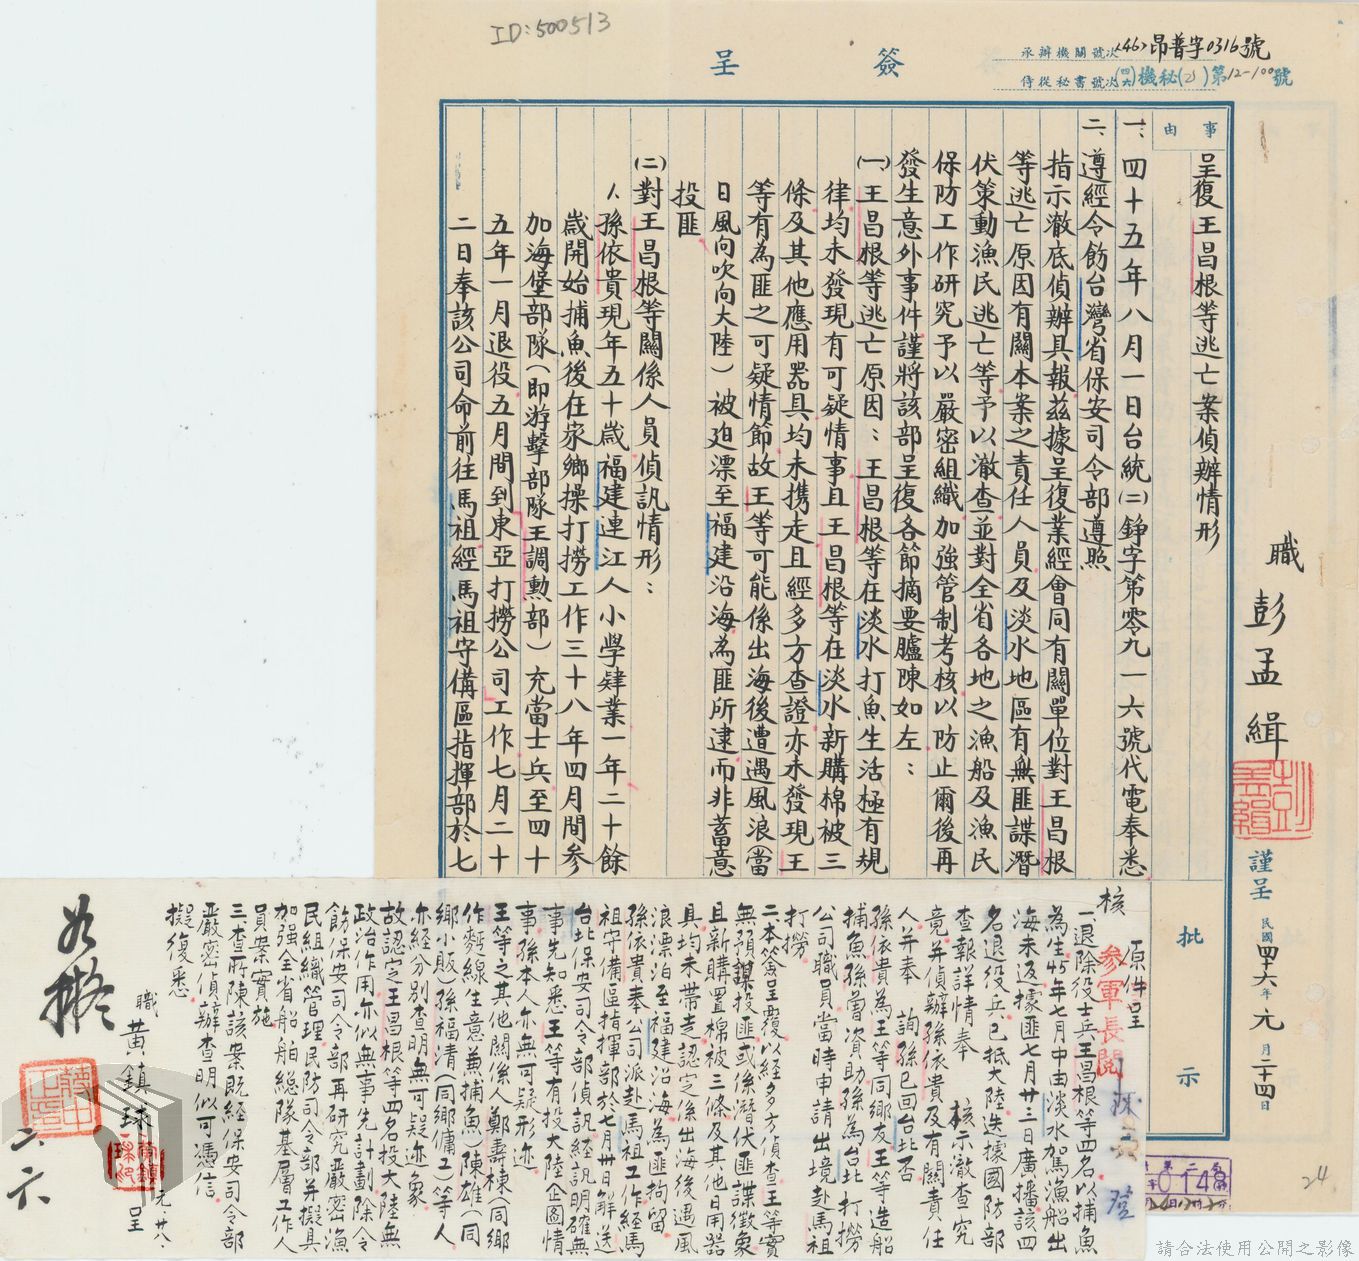 ID:500513
簽呈
承辦機關號次(46)昂普字0316號
侍從秘書號次(四六)機秘(乙)第12-100號
職 彭孟緝 謹呈 民國四十六年元月二十四日
事由
批示
呈復王昌根等逃亡案偵辦情形
一、四十五年八月一日台統(二)錚字第零九一六號代電奉悉
二、遵經令飭台灣省保安司令部遵照
指示澈底偵辦具報茲據呈復業經會同有關單位對王昌根
等逃亡原因有關本案之責任人員及淡水地區有無匪諜潛
伏策動漁民逃亡等予以澈查並對全省各地之漁船及漁民
保防工作研究予以嚴密組織加強管制考核以防止爾後再
發生意外事件謹將該部呈復各節摘要臚陳如左：
(一)王昌根等逃亡原因：王昌根等在淡水打魚生活極有規
律均未發現有可疑情事且王昌根等在淡水新購棉被三
條及其他應用器具均未携走且經多方查證亦未發現王
等有為匪之可疑情節故王等可能係出海後遭遇風浪(當
日風向吹向大陸)被迫漂至福建沿海為匪所逮而非蓄意
投匪
(二)對王昌根等關係人員偵訊情形：
1、孫依貴現年五十歲福建連江人小學肄業一年二十餘
歲開始捕魚後在家鄉操打撈工作三十八年四月間參
加海堡部隊(即游擊部隊王調勲部)充當士兵至四十
五年一月退役五月間到東亞打撈公司工作七月二十
二日奉該公司命前往馬祖經馬祖守備區指揮部於七
核
原件呈
參軍長閱
一退除役士兵王昌根等四名以捕魚
為生45年七月中由淡水駕漁船出
海未返據匪七月廿三日廣播該四
名退役兵已抵大陸迭據國防部
查報詳情奉 核示澈查究
竟并偵辦孫依貴及有關責任
人并奉 詢孫已回台北否
孫依貴為王等同鄉友王等造船
捕魚孫曾資助孫為台北打撈
公司職員當時申請出境赴馬祖
打撈
二本簽呈覆以經多方偵查王等實
無預謀投匪或係潛伏匪諜徵象
且新購置棉被三條及其他日用器
具均未帶走認定係出海後遇風
浪漂泊至福建沿海為匪拘留
孫依貴奉公司派赴馬祖工作經馬
祖守備區指揮部於七月廿日解送
台北保安司令部偵訊經訊明確無
事先知悉王等有投大陸企圖情
事孫本人亦無可疑形迹
王等之其他關係人鄭壽棟(同鄉
作麵線生意兼捕魚)陳雄(同
鄉小販)孫福清(同鄉傭工)等人
亦經分別查明無可疑迹象
故認定王昌根等四名投大陸無
政治作用亦似無事先計劃除令
飭保安司令部再研究嚴密漁
民組織管理民防司令部并擬具
加强全省船舶總隊基層工作人
員案實施
三查所陳該案既經保安司令部
嚴密偵辦查明似可憑信
擬復悉
職 黃鎮球 呈 元廿八、
如擬
二六
0148
24
請合法使用公開之影像